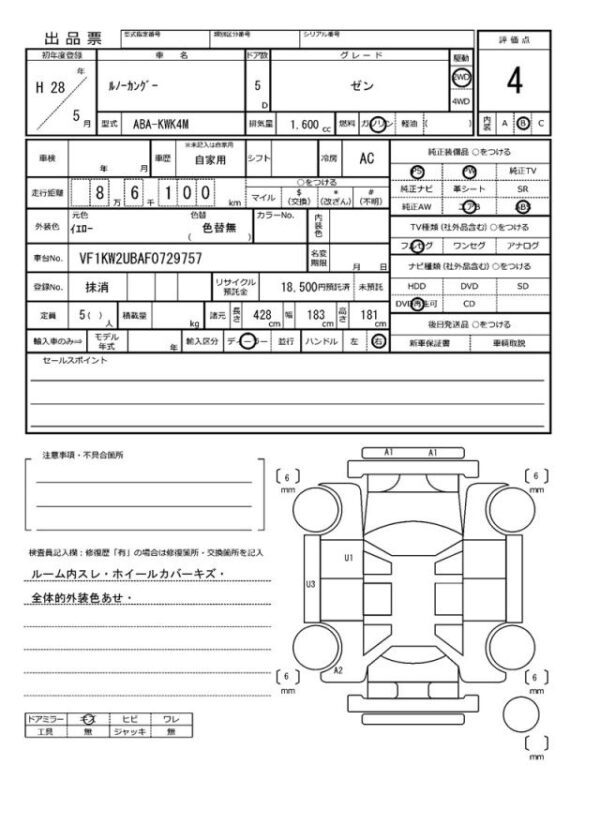 出品票 型式指定番号 類別区分番号 シリアル番号
評価点
4
初年度登録 車名 ドア数 グレード 駆動
H 28 年 5 月
ルノーカングー 5 D ゼン
2WD
4WD
型式 ABA-KWK4M 排気量 1,600 cc 燃料 ガソリン 軽油 ( )
内装 A B C
車検 年 月 車歴 ※未記入は自家用 自家用 シフト 冷房 AC
純正装備品 ○をつける
PS PW 純正TV
走行距離 8 万 6 千 1 0 0 km
○をつける
マイル $ (交換) * (改ざん) # (不明)
純正ナビ 革シート SR
純正AW エアB ABS
外装色 元色 イエロー 色替 ( 色替無 ) カラーNo. 内装色
TV種類 (社外品含む) ○をつける
フルセグ ワンセグ アナログ
車台No. VF1KW2UBAF0729757 名変期限 月 日
ナビ種類 (社外品含む) ○をつける
登録No. 抹消 リサイクル預託金 18,500円預託済 未預託
HDD DVD SD
DVD再生可 CD
定員 5( ) 人 積載量 kg 諸元 長さ 428 cm 幅 183 cm 高さ 181 cm
後日発送品 ○をつける
輸入車のみ⇒ モデル年式 年 輸入区分 ディーラー 並行 ハンドル 左 右
新車保証書 車輌取説
セールスポイント
注意事項・不具合箇所
検査員記入欄：修復歴「有」の場合は修復箇所・交換箇所を記入
ルーム内スレ・ホイールカバーキズ・
全体的外装色あせ・
A1 A1
6 mm 6 mm
U1
U3
A2
6 mm 6 mm
mm
ドアミラー キズ ヒビ ワレ
工具 無 ジャッキ 無